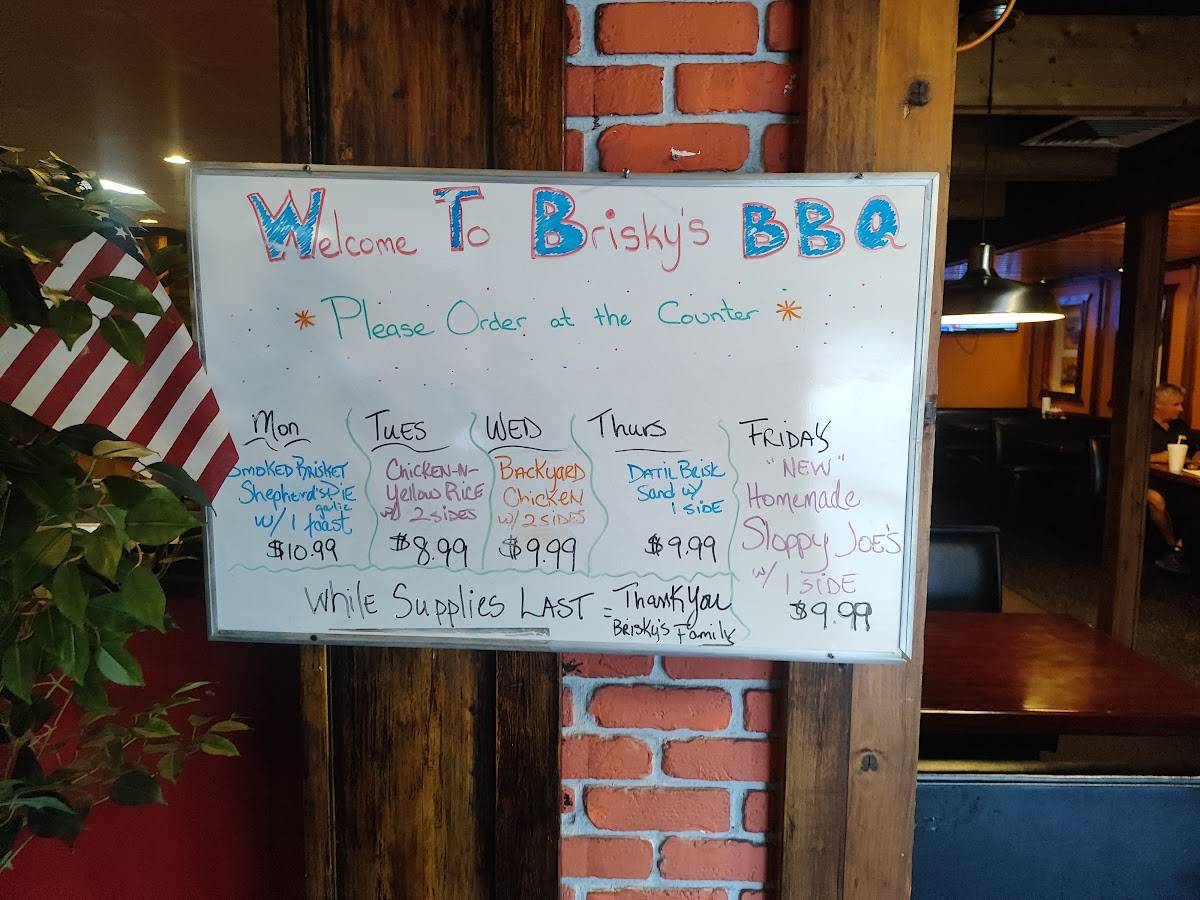 Welcome To Brisky's BBQ
* Please Order at the Counter *
Mon
Smoked Brisket
Shepherd's Pie
garlic
w/ 1 toast
$10.99
Tues
Chicken-n-
Yellow Rice
w/ 2 sides
$8.99
WED
Backyard
Chicken
w/ 2 sides
$9.99
Thurs
Datil Brisk
Sand w/
1 side
$9.99
Fridays
"NEW"
Homemade
Sloppy Joe's
w/ 1 side
$9.99
While Supplies Last =
Thank You
Brisky's Family